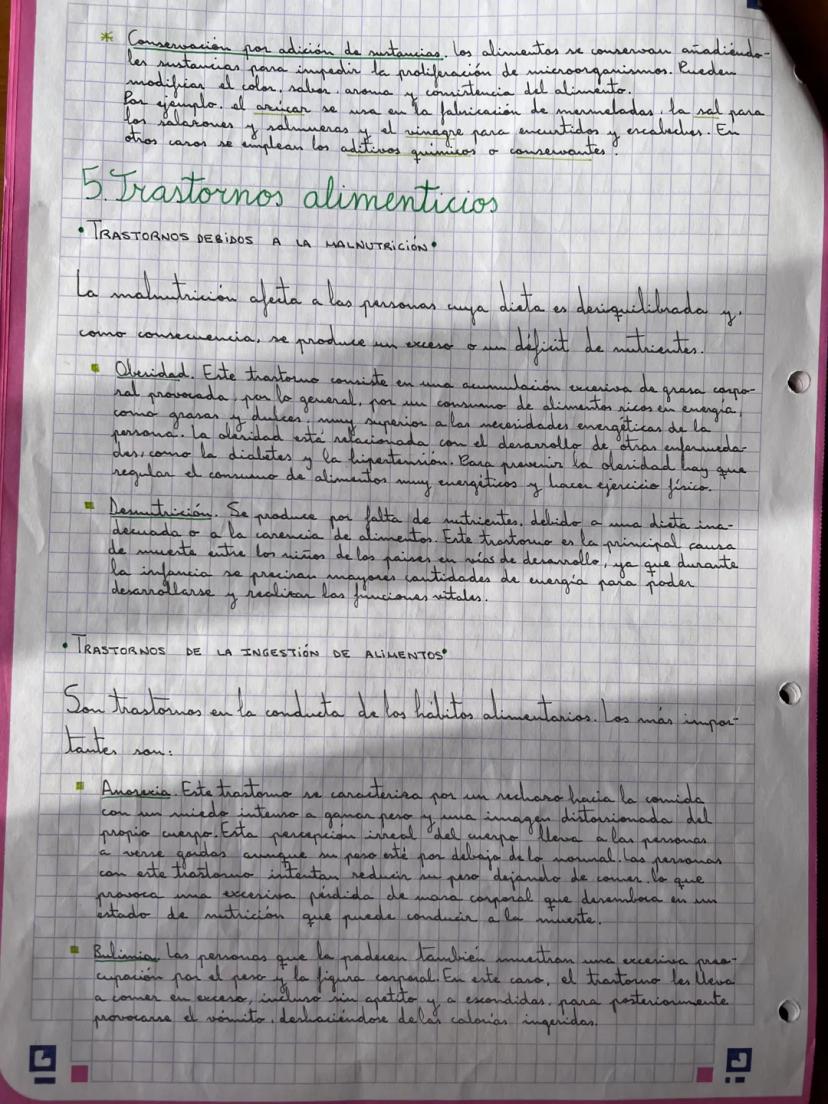 * Conservación por adición de sustancias. Los alimentos se conservan añadiéndo-
les sustancias para impedir la proliferación de microorganismos. Pueden
modificar el color, sabor, aroma y consistencia del alimento.
Por ejemplo, el azúcar se usa en la fabricación de mermeladas, la sal para
los salazones y salmueras y el vinagre para encurtidos y escabeches. En
otros casos se emplean los aditivos químicos o conservantes.
5. Trastornos alimenticios
• TRASTORNOS DEBIDOS A LA MALNUTRICIÓN •
La malnutrición afecta a las personas cuya dieta es desiquilibrada y,
como consecuencia, se produce un exceso o un déficit de nutrientes.
Obesidad. Este trastorno consiste en una acumulación excesiva de grasa corpo-
ral provocada, por lo general, por un consumo de alimentos ricos en energía,
como grasas y dulces, muy superior a las necesidades energéticas de la
persona. La obesidad está relacionada con el desarrollo de otras enfermeda-
des, como la diabetes y la hipertensión. Para prevenir la obesidad hay que
regular el consumo de alimentos muy energéticos y hacer ejercicio físico.
Desnutrición. Se produce por falta de nutrientes, debido a una dieta ina-
decuada o a la carencia de alimentos. Este trastorno es la principal causa
de muerte entre los niños de los países en vías de desarrollo, ya que durante
la infancia se precisan mayores cantidades de energía para poder
desarrollarse y realizar las funciones vitales.
• TRASTORNOS DE LA INGESTIÓN DE ALIMENTOS •
Son trastornos en la conducta de los hábitos alimentarios. Los más impor-
tantes son:
Anorexia. Este trastorno se caracteriza por un rechazo hacia la comida
con un miedo intenso a ganar peso y una imagen distorsionada del
propio cuerpo. Esta percepción irreal del cuerpo lleva a las personas
a verse gordas aunque su peso esté por debajo de lo normal. Las personas
con este trastorno intentan reducir su peso dejando de comer, lo que
provoca una excesiva pérdida de masa corporal que desemboca en un
estado de nutrición que puede conducir a la muerte.
Bulimia. Las personas que la padecen también muestran una excesiva preo-
cupación por el peso y la figura corporal. En este caso, el trastorno les lleva
a comer en exceso, incluso sin apetito y a escondidas, para posteriormente
provocarse el vómito, deshaciéndose de las calorías ingeridas.